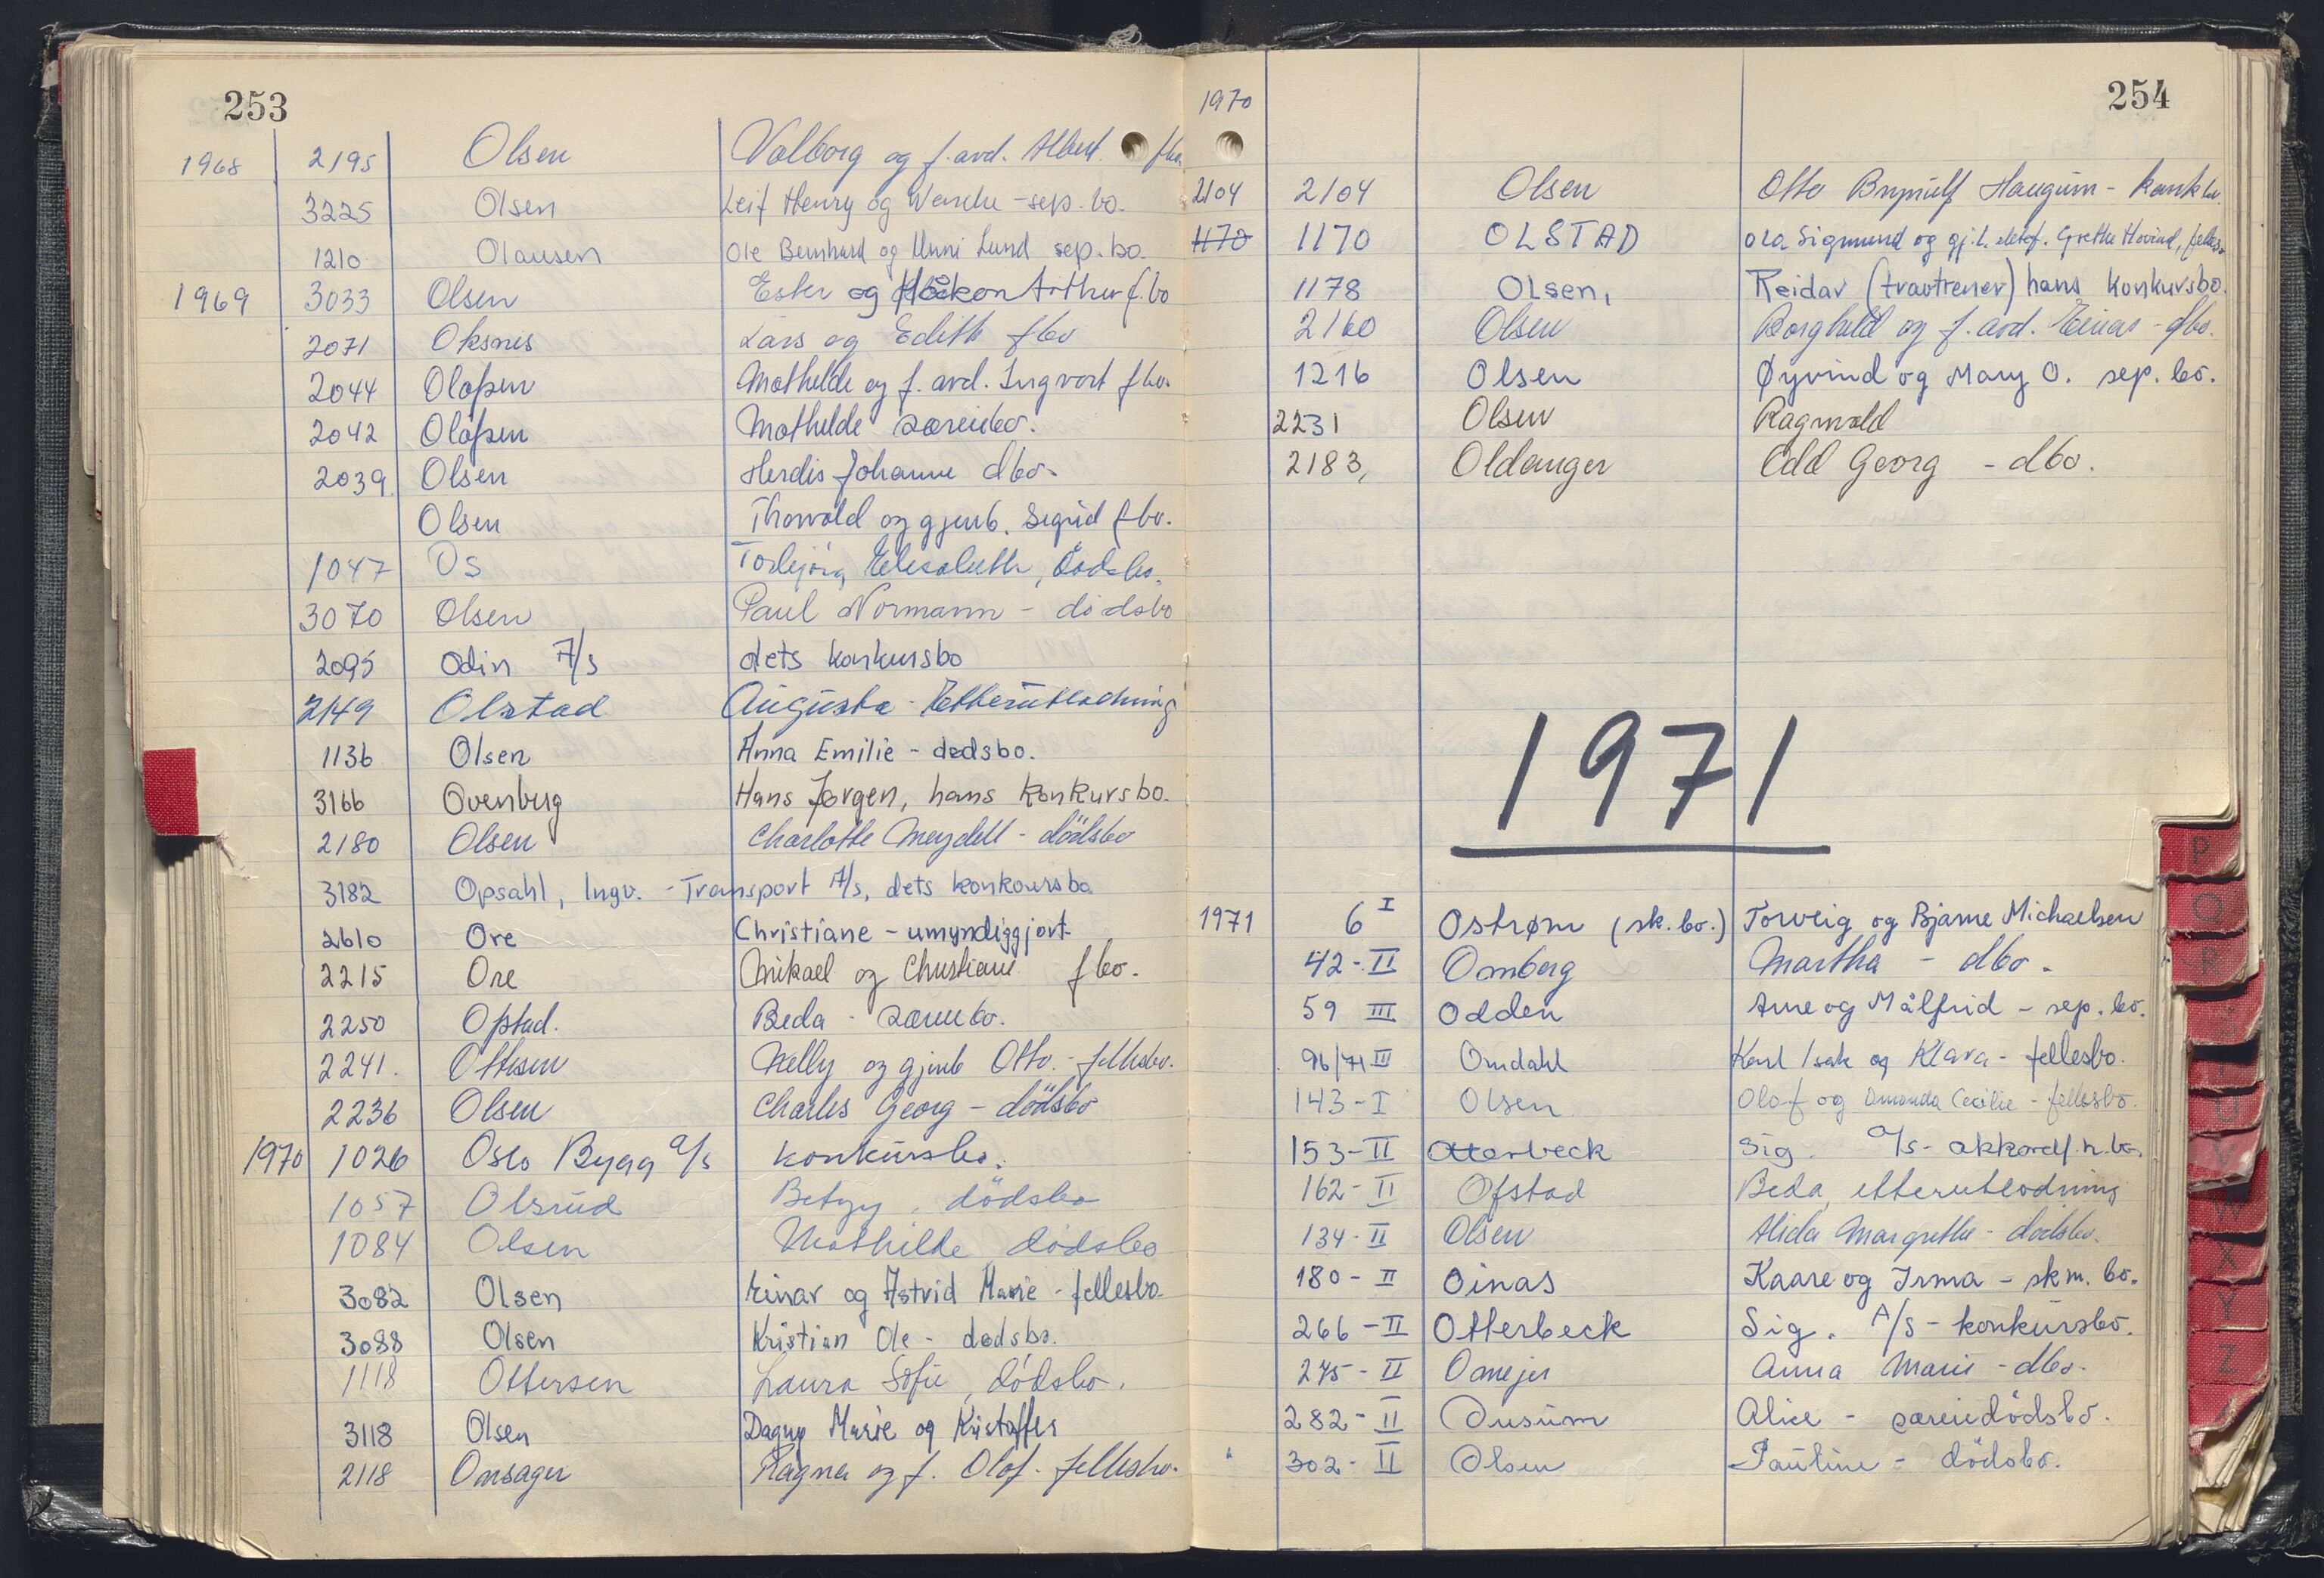 253
1968 2195 Olsen Valborg og f. avd. Albert fbo.
3225 Olsen Leif Henry og Wenche - sep. bo.
1210 Olausen Ole Bernhard og Unni Lund sep. bo.
1969 3033 Olsen Ester og Håkon Arthur f.bo
2071 Oksnes Lars og Edith fbo
2044 Olafsen Mathilde og f. avd. Ingvart fbo.
2042 Olafsen Mathilde særeiebo.
2039. Olsen Herdis Johanne dbo.
Olsen Thorvald og gjenb. Sigrid fbo.
1047 Os Torbjørg Elisabeth, dødsbo.
3070 Olsen Paul Normann - dødsbo
2095 Odin A/s dets konkursbo
2149 Olstad Augusta - Etterutlodning
1136 Olsen Anna Emilie - dødsbo.
3166 Ovenberg Hans Jørgen, hans konkursbo.
2180 Olsen Charlotte Meydell - dödsbo
3182 Opsahl, Ingv. - Transport A/s, dets konkoursbo
2610 Ore Christiane - umyndiggjort
2215 Ore Mikael og Christiane fbo.
2250 Opstad. Beda - særeiebo.
2241. Ottesen Nelly og gjenb Otto. - fellesbo.
2236 Olsen Charles Georg - dödsbo
1970 1026 Oslo Bygg a/s konkursbo.
1057 Olsrud Betzy, dödsbo
1084 Olsen Mathilde dødsbo
3082 Olsen Einar og Astrid Marie - fellesbo
3088 Olsen Kristian Ole - dødsbo.
1118 Ottersen Laura Sofie, dødsbo.
3118 Olsen Dagny Marie og Kristoffer
2118 Omsager Ragna og f. Olof - fellesbo.
254
1970
2104 2104 Olsen Otto Brynulf Haugum - konk bo.
1170 1170 OLSTAD Ola Sigmund og gj.l. Grethe Hovind, fellesbo
1178 Olsen, Reidar (travtrener) hans konkursbo.
2160 Olsen Borghild og f. avd. Einar - fbo.
1216 Olsen Øyvind og Mary O. sep. bo.
2231 Olsen Ragnvald
2183, Oldanger Odd Georg - dbo.
1971
1971 6 I Ostrøm (sk. bo.) Torveig og Bjarne Michaelsen
42 - II Oomberg Martha - dbo.
59 III Odden Arne og Målfrid - sep. bo.
96/71 III Omdahl Karl Isak og Klara - fellesbo.
143 - I Olsen Olof og Amanda Cecilie - fellesbo.
153 - II Otterbeck Sig. A/S - akkordf.h.bo.
162 - II Ofstad Beda, etterutlodning
134 - II Olsen Alida Margrethe - dødsbo.
180 - II Oinas Kaare og Irma - skm. bo.
266 - II Otterbeck Sig. A/S - konkursbo.
275 - II Omejer Anna Marie - dbo.
282 - II Ousum Alice - særeiedödsbo.
" 302 - II Olsen Pauline - dödsbo.
P
Q
R
T
U
V
W
X
Y
Z